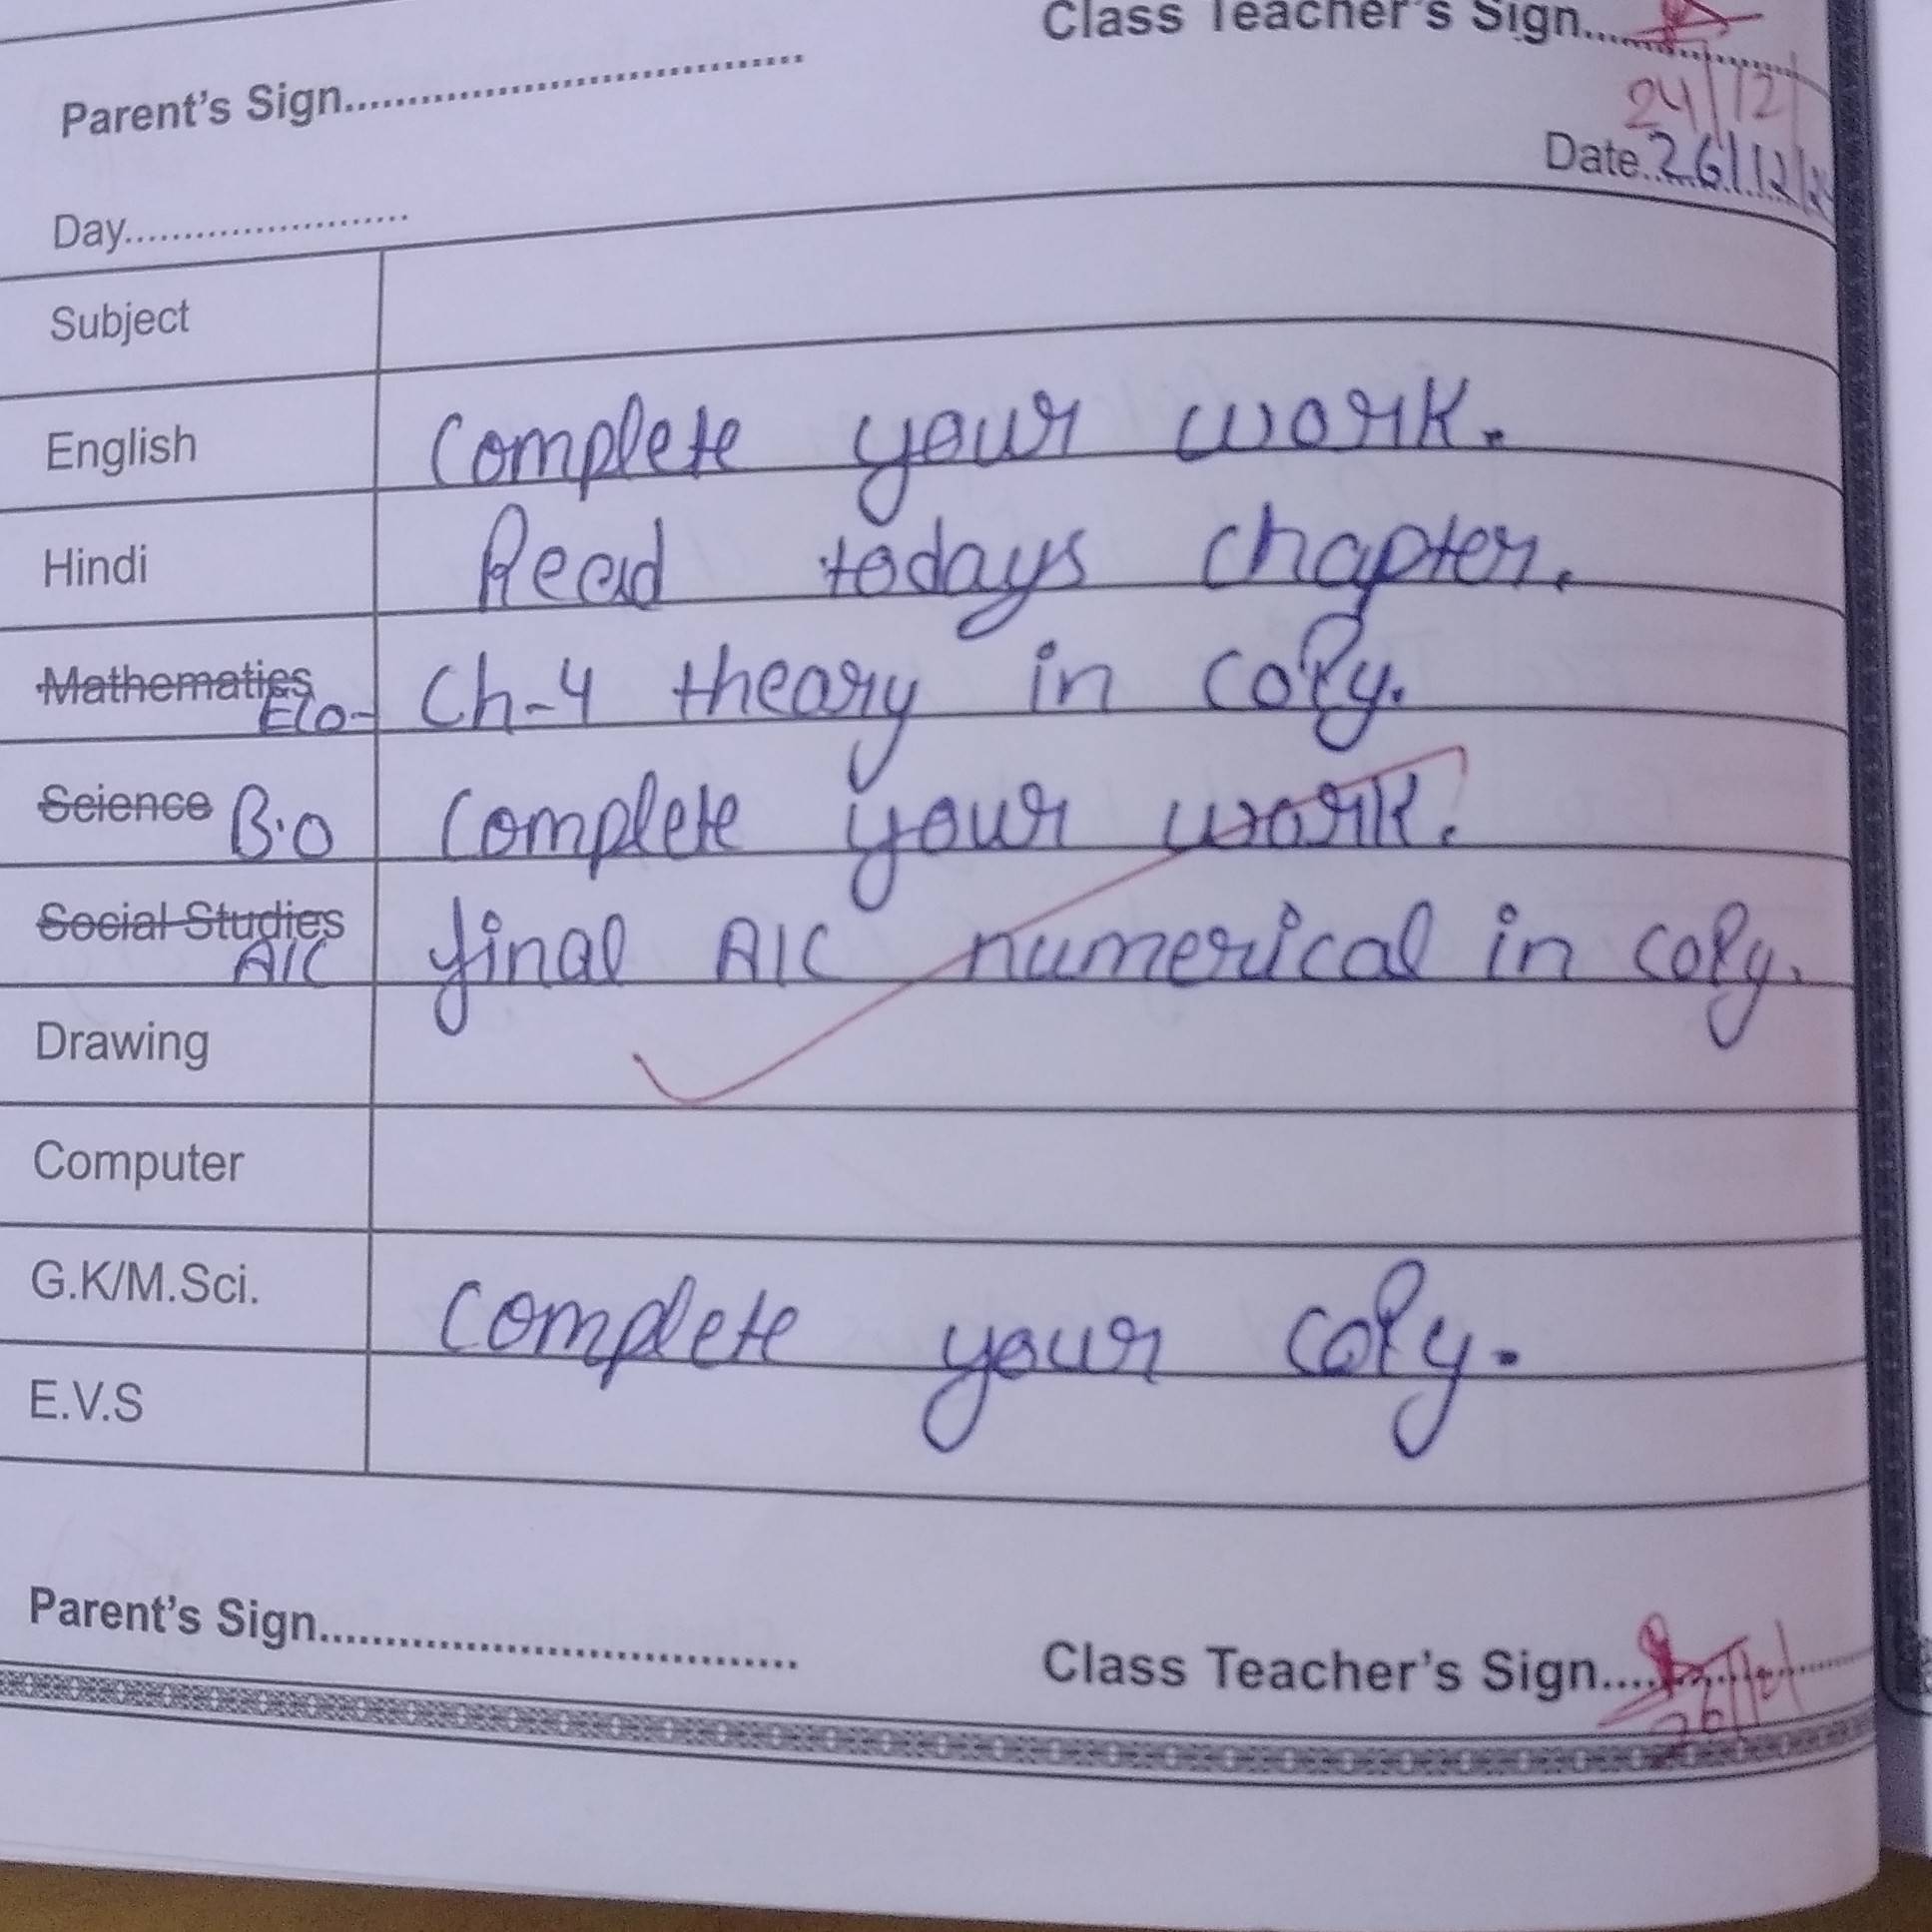 Class Teacher's Sign..........
24/12/
Parent's Sign..............................
Date..26/12/
Day........................
Subject
English Complete your work.
Hindi Read todays chapter.
Mathematics Eco- Ch-4 theory in copy.
Science B.O Complete your work.
Social Studies A/C final A/C numerical in copy.
Drawing
Computer
G.K/M.Sci. Complete your copy.
E.V.S
Parent's Sign..............................
Class Teacher's Sign..........
26/12/